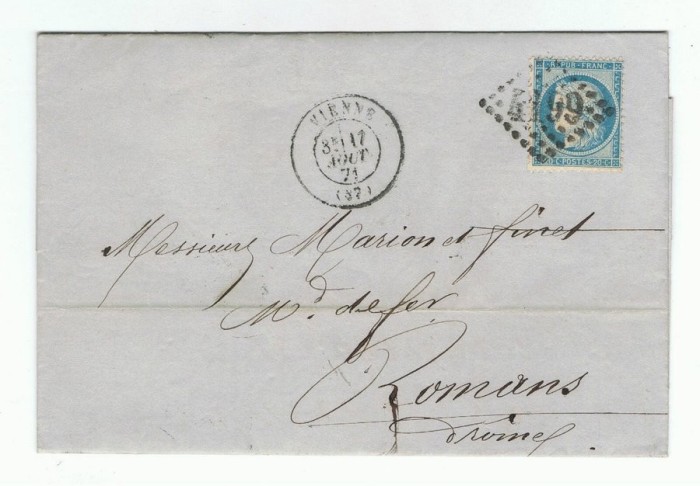 REPUB·FRANC·
20·C·POSTES·20·C·
4199
VIENNE
3E 17
AOUT
71
(37)
Messieurs Marion et finet
Md de fer
Romans
Drome